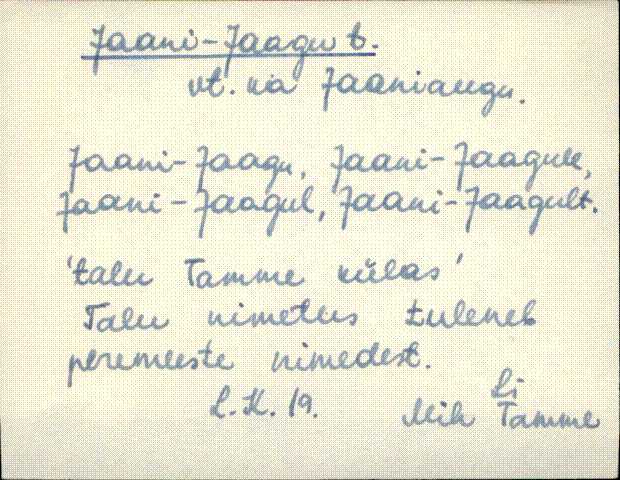 Jaani-Jaagu t.
vt. ka Jaaniaugu.
Jaani-Jaagu, Jaani-Jaagule,
Jaani-Jaagul, Jaani-Jaagult.
'talu Tamme külas'
Talu nimetus tuleneb
peremeeste nimedest.
L.K. 19. Li
Mih Tamme